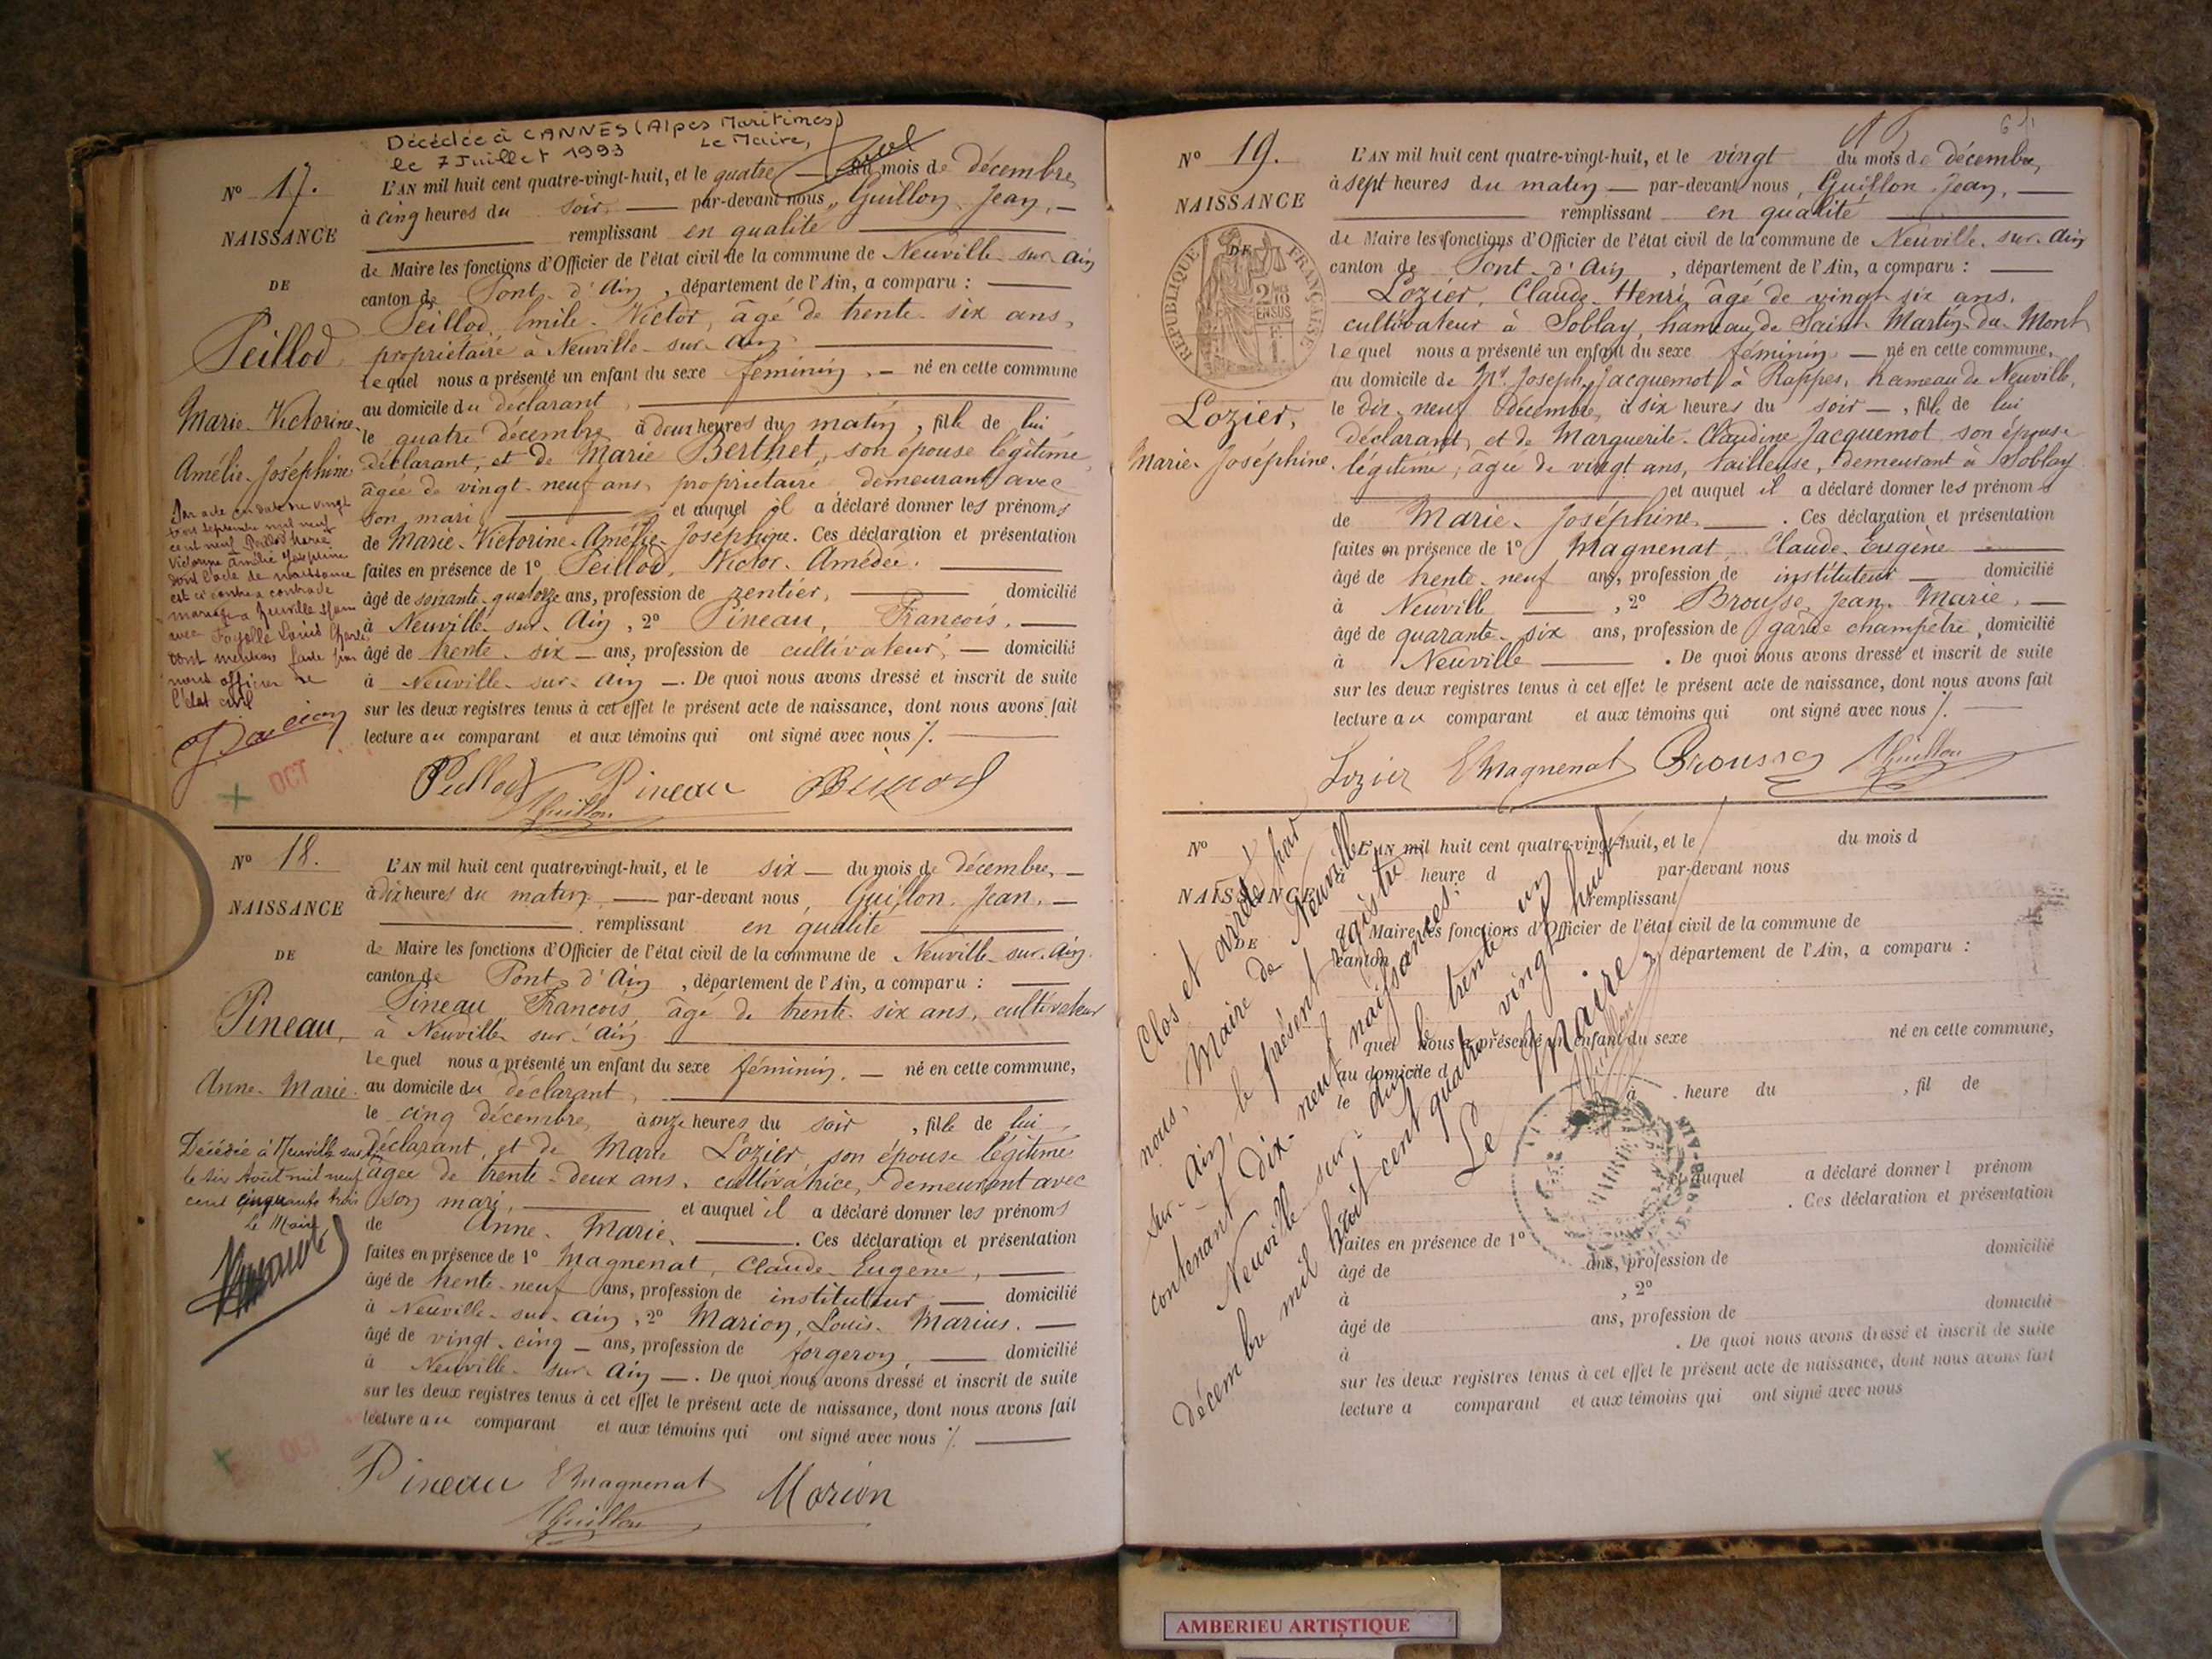 Décédée à CANNES (Alpes Maritimes)
le 7 Juillet 1993 Le Maire,
N° 17.
NAISSANCE
DE
Peillod
Marie-Victorine
Amélie-Joséphine
Par acte en date du vingt
trois septembre mil neuf
cent neuf Peillod Marie
Victorine Amélie Joséphine
dont l'acte de naissance
est ci contre a contracté
mariage à Neuville s/Ain
avec Fayolle Louis Charles
dont mention faite par
nous officier de
l'état civil
OCT
L'AN mil huit cent quatre-vingt-huit, et le quatre du mois de décembre,
à cinq heures du soir, par-devant nous, Guillon, Jean,
remplissant en qualité
de Maire les fonctions d'Officier de l'état civil de la commune de Neuville-sur-Ain
canton de Pont-d'Ain, département de l'Ain, a comparu :
Peillod, Emile-Victor, âgé de trente-six ans,
propriétaire à Neuville-sur-Ain,
lequel nous a présenté un enfant du sexe féminin, né en cette commune
au domicile du déclarant,
le quatre décembre, à deux heures du matin, fille de lui
déclarant, et de Marie Berthet, son épouse légitime,
âgée de vingt-neuf ans, propriétaire demeurant avec
son mari, et auquel il a déclaré donner les prénoms
de Marie-Victorine-Amélie-Joséphine. Ces déclaration et présentation
faites en présence de 1° Peillod, Victor-Amédée.
âgé de soixante-quatorze ans, profession de rentier, domicilié
à Neuville-sur-Ain, 2° Pineau, François,
âgé de trente-six ans, profession de cultivateur, domicilié
à Neuville-sur-Ain. De quoi nous avons dressé et inscrit de suite
sur les deux registres tenus à cet effet le présent acte de naissance, dont nous avons fait
lecture au comparant et aux témoins qui ont signé avec nous %.
Peillod Pineau
Guillon
N° 18.
NAISSANCE
DE
Pineau,
Anne-Marie.
Décédée à Neuville sur Ain
le six Août mil neuf
cent cinquante trois
Le Maire
OCT
L'AN mil huit cent quatre-vingt-huit, et le six du mois de décembre,
à dix heures du matin, par-devant nous, Guillon, Jean,
remplissant en qualité
de Maire les fonctions d'Officier de l'état civil de la commune de Neuville-sur-Ain
canton de Pont d'Ain, département de l'Ain, a comparu :
Pineau, François, âgé de trente-six ans, cultivateur
à Neuville sur Ain
lequel nous a présenté un enfant du sexe féminin, né en cette commune,
au domicile du déclarant,
le cinq décembre, à onze heures du soir, fille de lui
déclarant, et de Marie Lozier, son épouse légitime
âgée de trente-deux ans, cultivatrice, demeurant avec
son mari, et auquel il a déclaré donner les prénoms
de Anne-Marie. Ces déclaration et présentation
faites en présence de 1° Magnenat, Claude-Eugène,
âgé de trente-neuf ans, profession de instituteur domicilié
à Neuville-sur-Ain, 2° Marion, Louis-Marius.
âgé de vingt-cinq ans, profession de forgeron, domicilié
à Neuville-sur-Ain. De quoi nous avons dressé et inscrit de suite
sur les deux registres tenus à cet effet le présent acte de naissance, dont nous avons fait
lecture au comparant et aux témoins qui ont signé avec nous %
Pineau E Magnenat Marion
Guillon
N° 19.
NAISSANCE
DE
REPUBLIQUE FRANÇAISE
Lozier,
Marie-Joséphine.
L'AN mil huit cent quatre-vingt-huit, et le vingt du mois de décembre,
à sept heures du matin par-devant nous, Guillon, Jean,
remplissant en qualité
de Maire les fonctions d'Officier de l'état civil de la commune de Neuville-sur-Ain
canton de Pont-d'Ain, département de l'Ain, a comparu :
Lozier, Claude-Henri, âgé de vingt-six ans,
cultivateur à Soblay, hameau de Saint-Martin-du-Mont
lequel nous a présenté un enfant du sexe féminin né en cette commune,
au domicile de Mr. Joseph Jacquemot, à Rappes, hameau de Neuville,
le dix-neuf décembre, à six heures du soir, fille de lui
déclarant, et de Marguerite-Claudine Jacquemot son épouse
légitime, âgée de vingt ans, tailleuse, demeurant à Soblay
et auquel il a déclaré donner les prénoms
de Marie-Joséphine. Ces déclaration et présentation
faites en présence de 1° Magnenat, Claude-Eugène
âgé de trente-neuf ans, profession de instituteur domicilié
à Neuville, 2° Brousse, Jean-Marie,
âgé de quarante-six ans, profession de garde champêtre, domicilié
à Neuville. De quoi nous avons dressé et inscrit de suite
sur les deux registres tenus à cet effet le présent acte de naissance, dont nous avons fait
lecture au comparant et aux témoins qui ont signé avec nous %.
Lozier E Magnenat Brousse Guillon
N°
NAISSANCE
DE
L'AN mil huit cent quatre-vingt-huit, et le du mois d
heure d par-devant nous
remplissant
d Maire les fonctions d'Officier de l'état civil de la commune de
canton d département de l'Ain, a comparu :
quel nous a présenté un enfant du sexe né en cette commune,
au domicile d
le à heure du , fil de
et auquel a déclaré donner l prénom
. Ces déclaration et présentation
faites en présence de 1°
âgé de ans, profession de domicilié
à , 2°
âgé de ans, profession de domicilié
à . De quoi nous avons dressé et inscrit de suite
sur les deux registres tenus à cet effet le présent acte de naissance, dont nous avons fait
lecture a comparant et aux témoins qui ont signé avec nous
Clos et arrêté par
nous, Maire de Neuville
sur-Ain, le présent registre
contenant dix-neuf naissances.
Neuville-sur-Ain le trente-un
décembre mil huit cent quatre vingt huit
Le Maire,
Guillon
AMBERIEU ARTISTIQUE